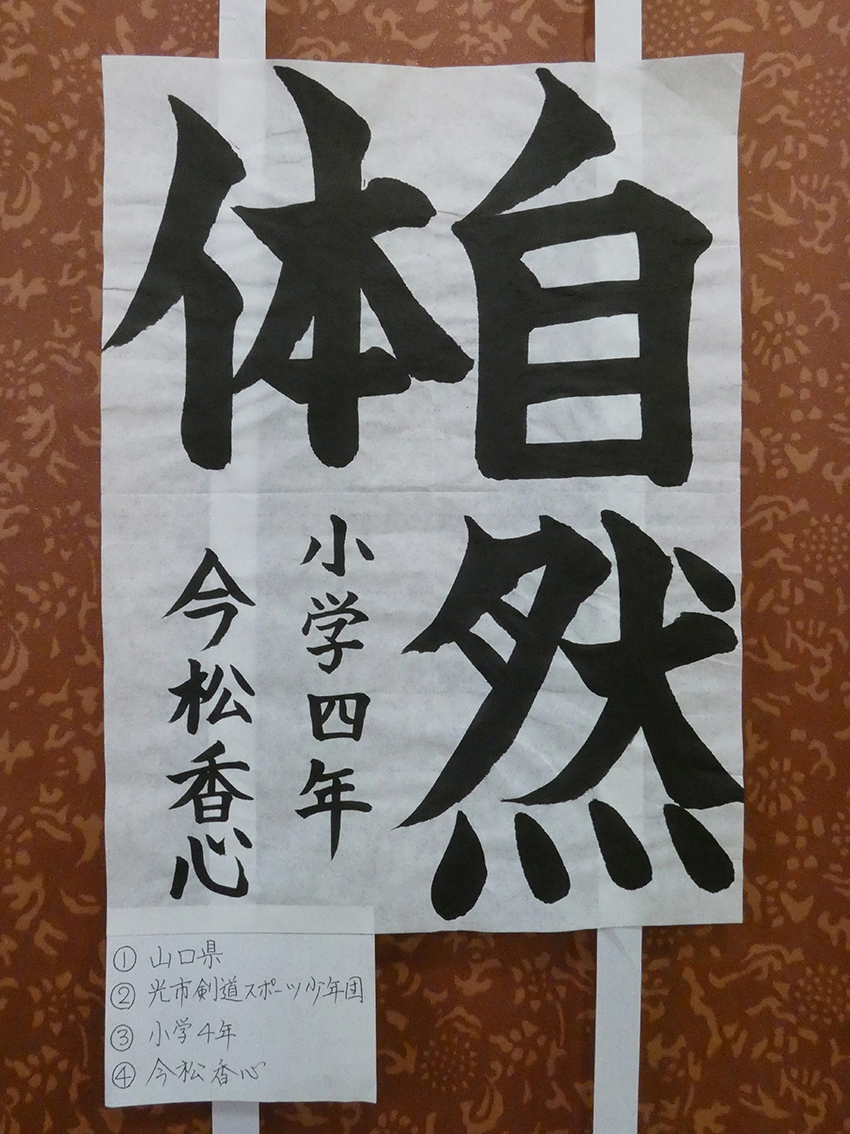 自然
体
小学四年
今松香心
① 山口県
② 光市剣道スポーツ少年団
③ 小学4年
④ 今松香心